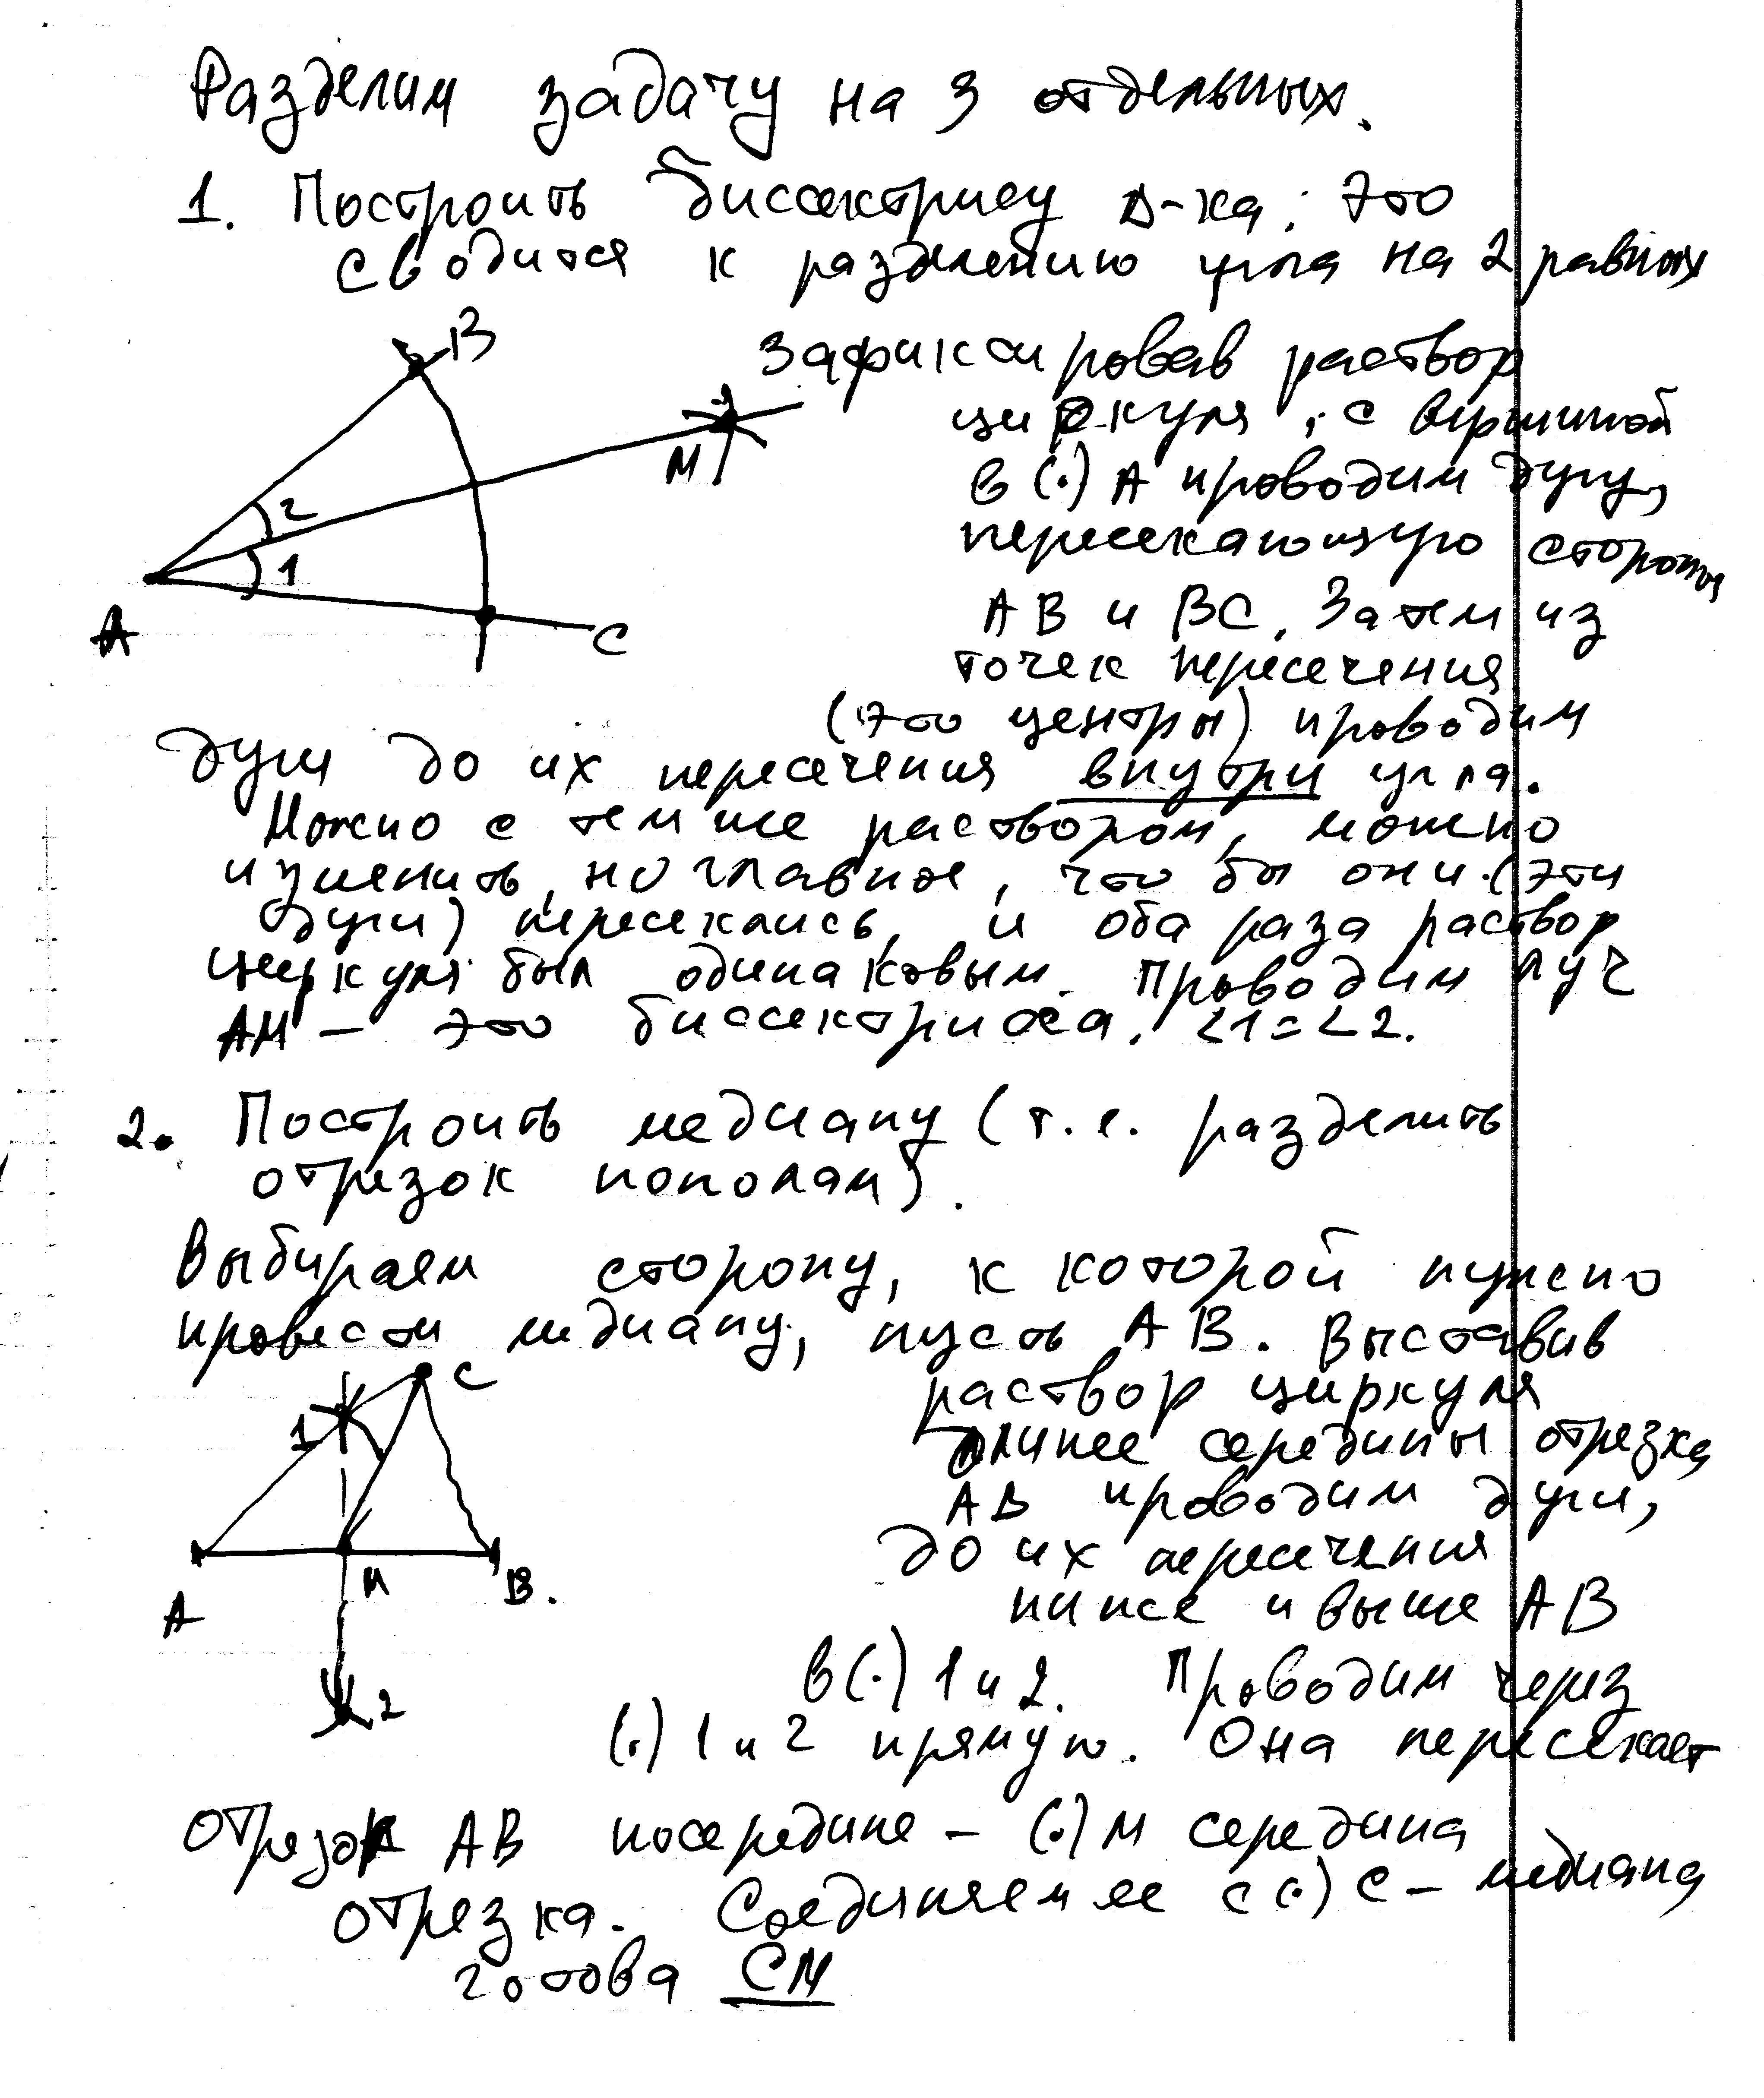 Разделим задачу на 3 отдельных.
1. Построить биссектрису Δ-ка: Это
сводится к разделению угла на 2 равных
B
M
2
1
A
C
Зафиксировав раствор
циркуля, с вершиной
в (·) A проводим дугу,
пересекающую стороны
AB и BC. Затем из
точек пересечения
(это центры) проводим
дуги до их пересечения внутри угла.
Можно с тем же раствором, можно
изменить, но главное, что бы они (эти
дуги) пересеклись, и оба раза раствор
циркуля был одинаковым. Проводим луч
AM – это биссектриса. ∠1=∠2.
2. Построить медиану (т.е. разделить
отрезок пополам).
Выбираем сторону, к которой нужно
провести медиану, пусть AB. Выставив
C
1
A
M
B.
2
раствор циркуля
длинее середины отрезка
AB проводим дуги,
до их пересечения
ниже и выше AB
в (·) 1 и 2. Проводим через
(·) 1 и 2 прямую. Она пересекает
отрезок AB посередине – (·) M середина
отрезка. Соединяем ее с (·) C – медиана
готова CM